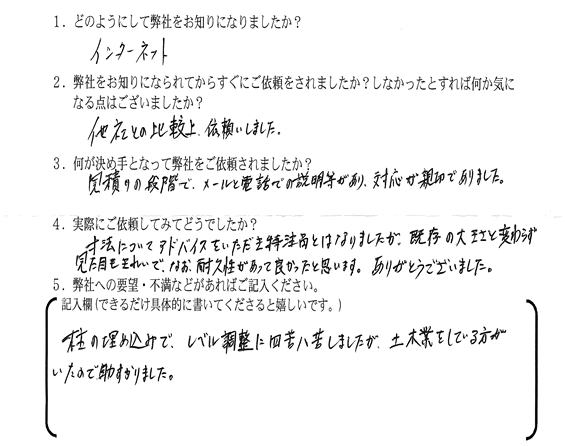 1．どのようにして弊社をお知りになりましたか？
インターネット
2．弊社をお知りになられてからすぐにご依頼をされましたか？しなかったとすれば何か気に
なる点はございましたか？
他社との比較上、依頼いしました。
3．何が決め手となって弊社をご依頼されましたか？
見積りの段階で、メールと電話での説明等があり、対応が親切でありました。
4．実際にご依頼してみてどうでしたか？
寸法についてアドバイスをいただき特注品とはなりましたが、既存の大きさと変わらず
見た目もきれいで、なお、耐久性があって良かったと思います。ありがとうございました。
5．弊社への要望・不満などがあればご記入ください。
記入欄（できるだけ具体的に書いてくださると嬉しいです。）
柱の埋め込みで、レベル調整に四苦八苦しましたが、土木業をしている方が
いたので助すかりました。